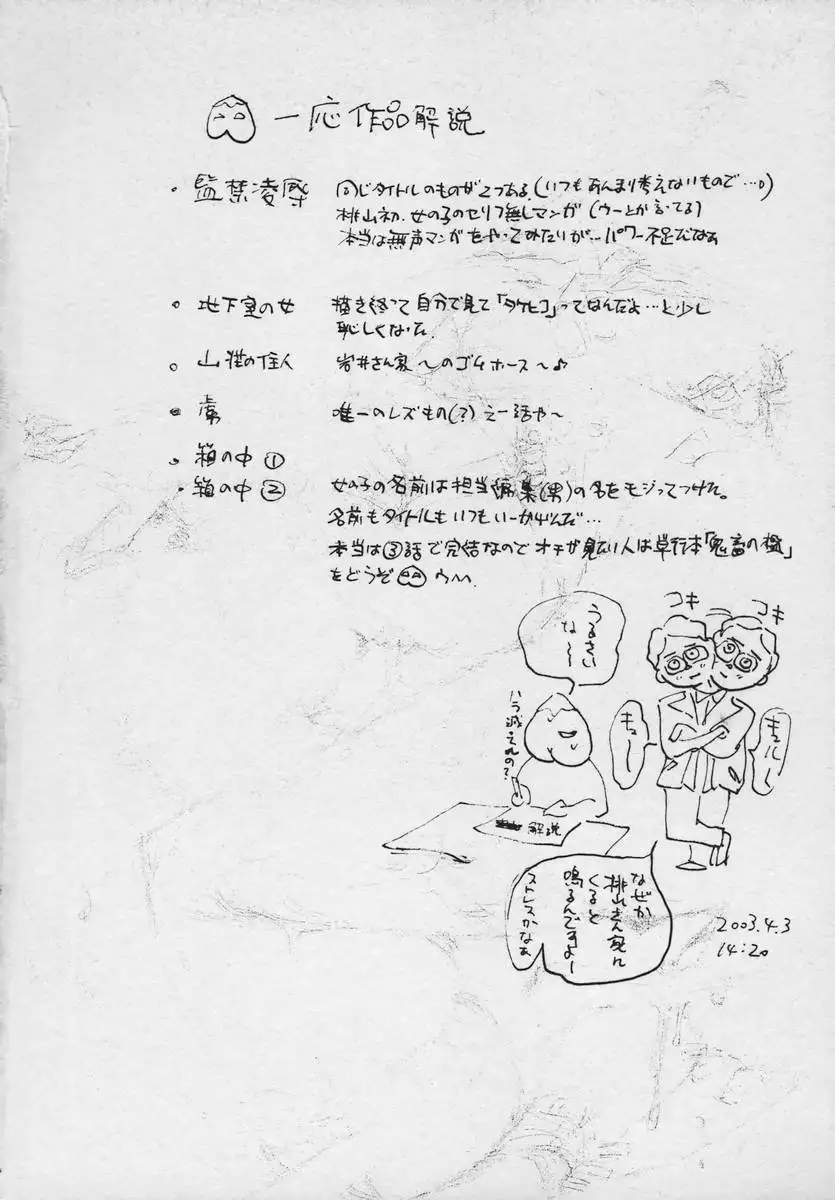 一応作品解説
・監禁凌辱 同じタイトルのものが2つある。(いつもあんまり考えないもので…。)
桃山初、女の子のセリフ無しマンガ(ウーとか言ってる)
本当は無声マンガをやってみたいが…パワー不足だなぁ
・地下室の女 描き終って自分で見て「タケヒコ」ってなんだよ…と少し
恥しくなった
・山荘の住人 岩井さん家〜のゴムホース〜♪
唯一のレズもの(?)えー話や〜
・箱の中①
・箱の中② 女の子の名前は担当編集(男)の名をモジってつけた。
名前もタイトルもいつもいーかげんだ…
本当は③話で完結なのでオチが見たい人は単行本「鬼畜の檻」
をどうぞ
コキ コキ
うるさい
な〜〜
ハラ減ってんの?
キュー
キュルルー
解説
なぜか
桃山さん家に
くると
鳴るんですよー
ストレスかなぁ
2003.4.3
14:20